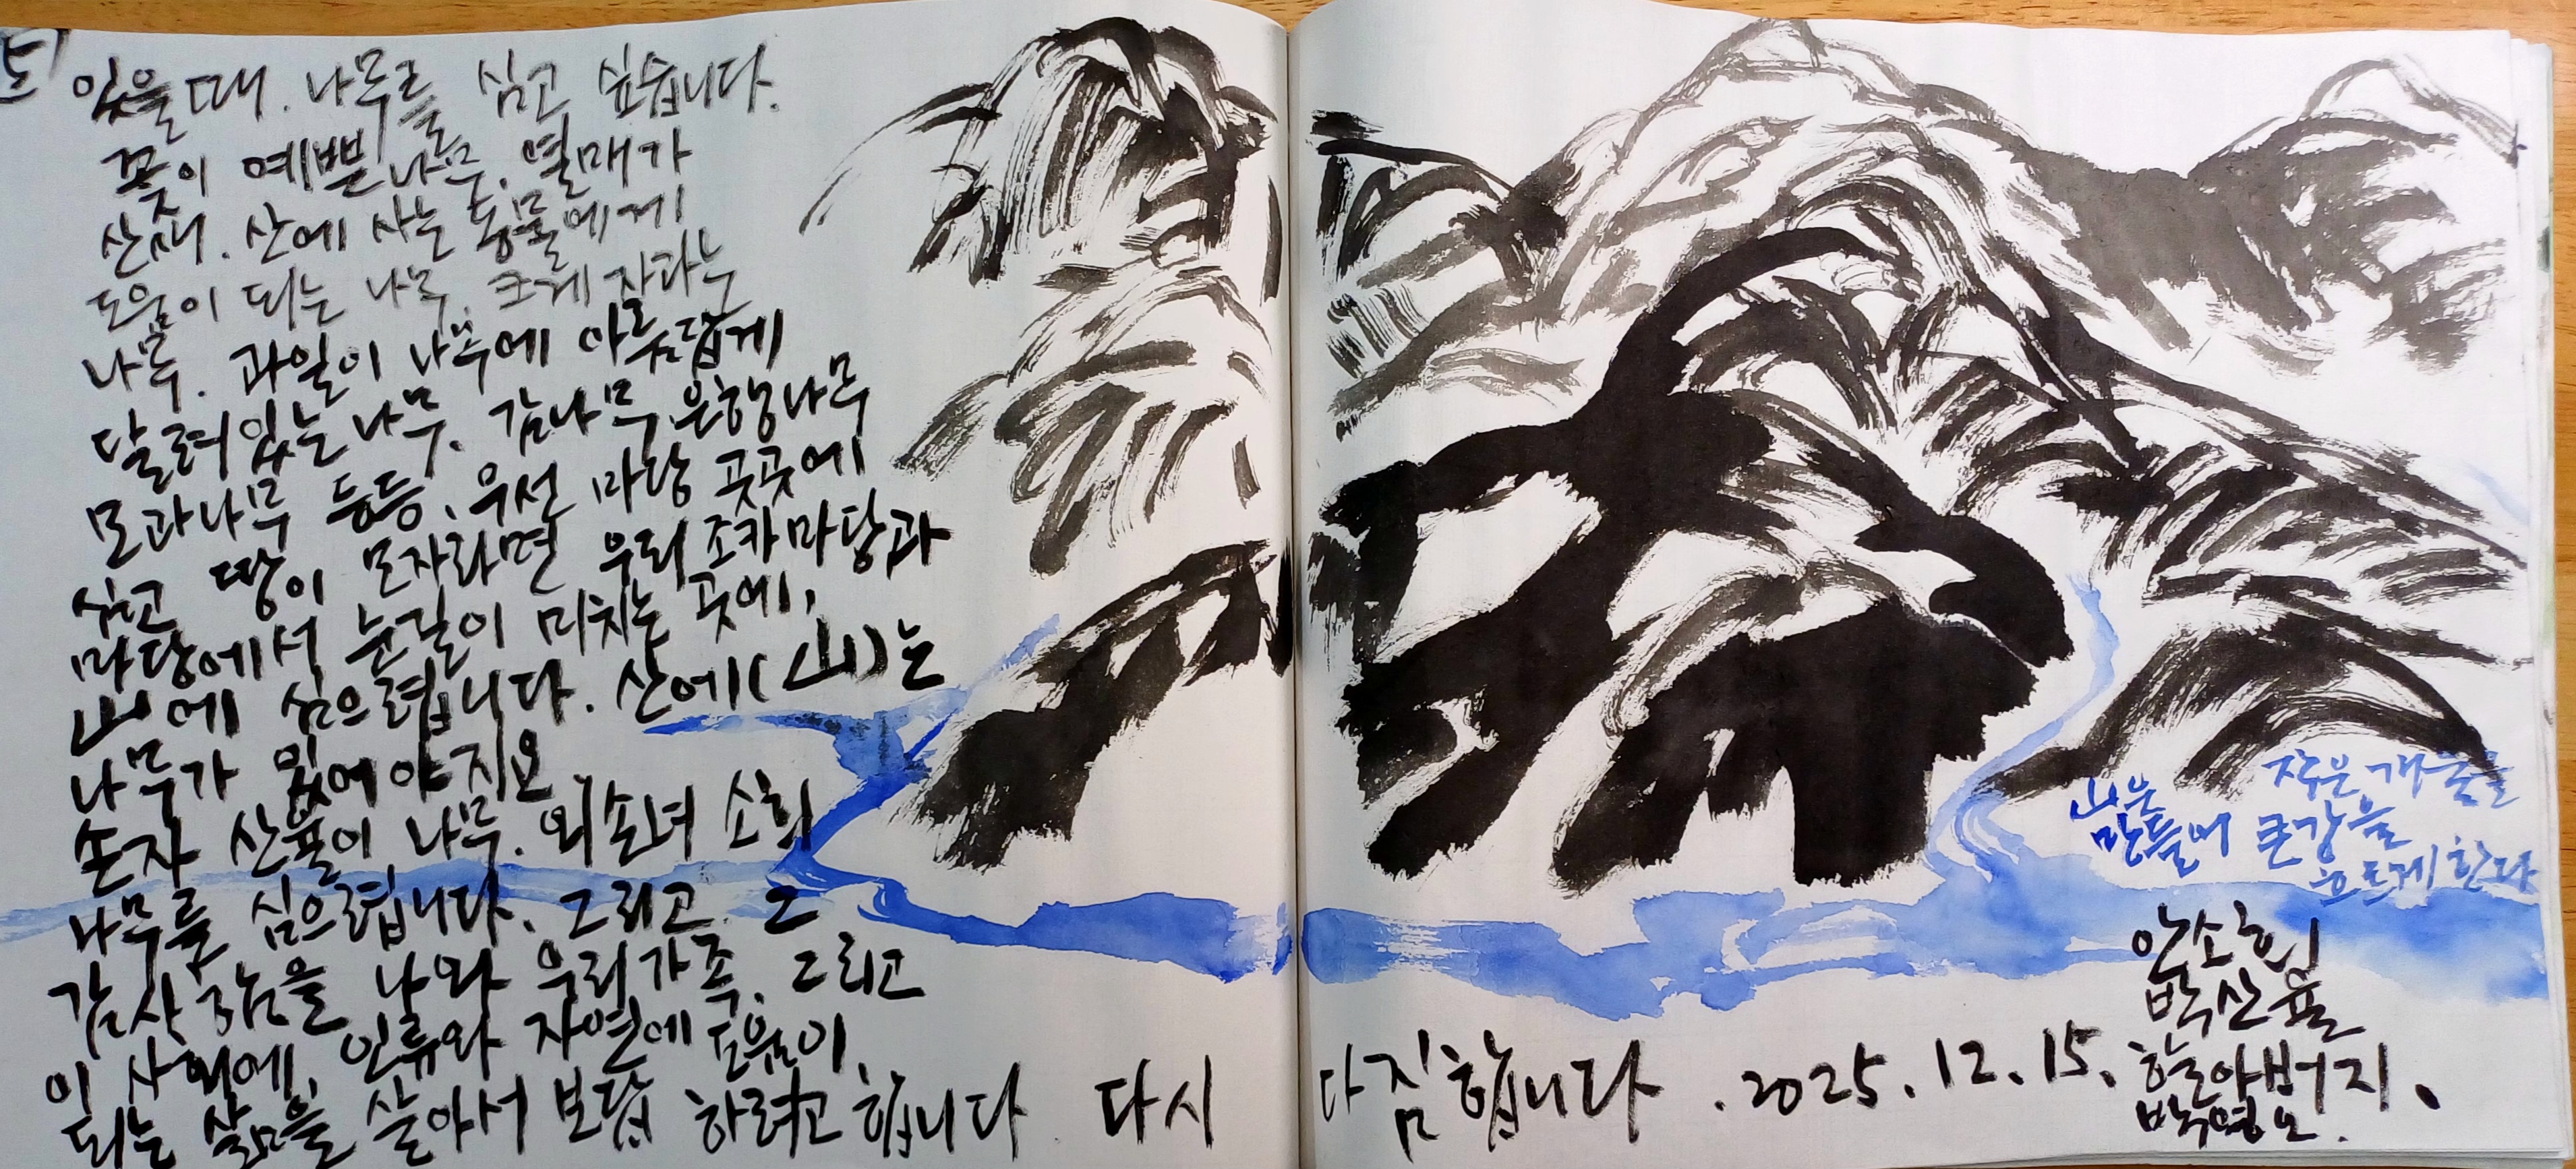 있을때. 나무를 심고 싶습니다.
꽃이 예쁜 나무. 열매가
산새. 산에 사는 동물에게
도움이 되는 나무. 크게 자라는
나무. 과일이 나무에 아름답게
달려있는 나무. 감나무. 은행나무
모과나무 등등. 우선 마당 곳곳에
심고 땅이 모자라면 우리 조카 마당과
마당에서 눈길이 미치는 곳에,
山에 심으렵니다. 산에(山)는
나무가 있어야지요
손자 산율이 나무. 외손녀 소희
나무를 심으렵니다. 그리고. 그
감사함을 나와 우리가족. 그리고
이 사회에. 인류와 자연에 도움이
되는 삶을 살아서 보답 하려고 합니다 다시
다짐합니다. 2025. 12. 15.
山은 작은 개울을
만들어 큰강을
흐르게 한다
안소희
박산율
할아버지.
박영오.